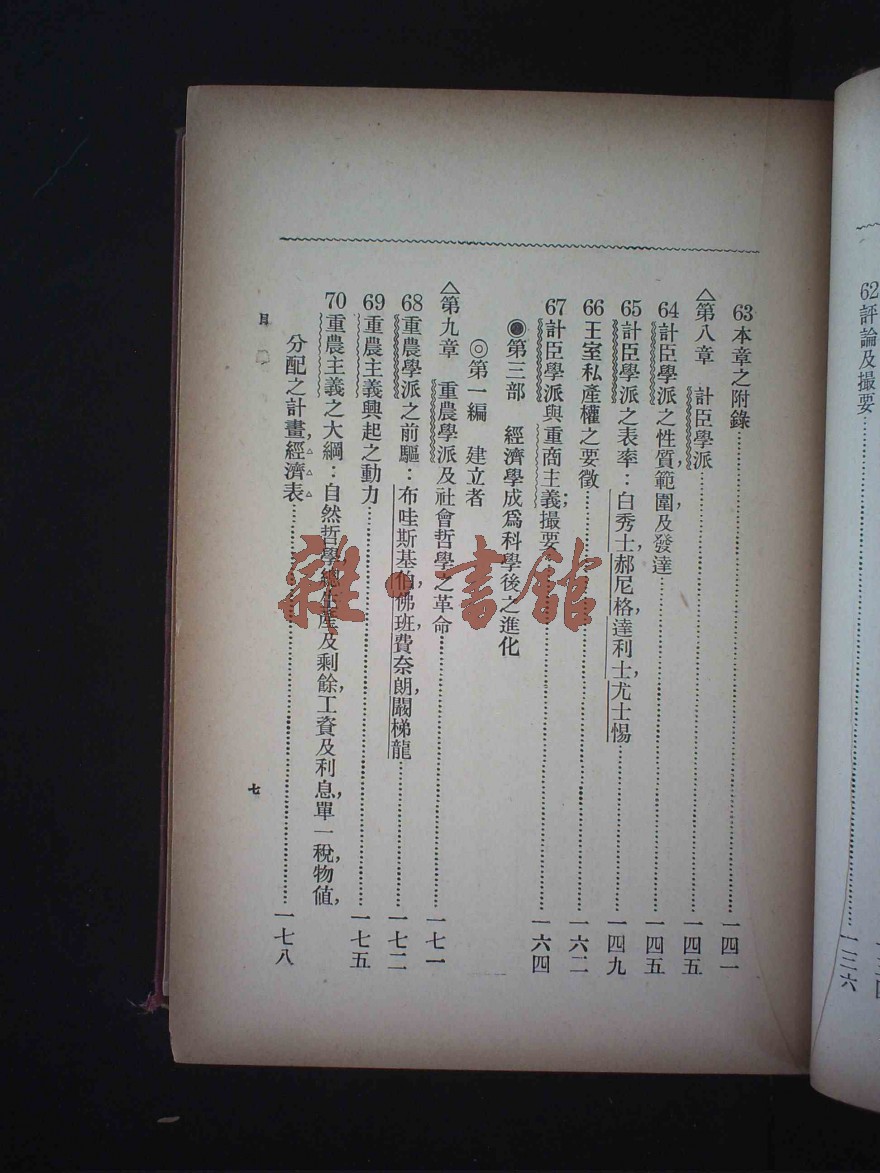 62評論及撮要……一三六
63本章之附錄……一四一
△第八章 計臣學派……一四五
64計臣學派之性質,範圍,及發達……一四五
65計臣學派之表率:白秀士,郝尼格,達利士,尤士惕……一四九
66王室私產權之要徵……一六二
67計臣學派與重商主義;撮要……一六四
◉第三部 經濟學成爲科學後之進化
◎第一編 建立者
△第九章 重農學派及社會哲學之革命……一七一
68重農學派之前驅:布哇斯基伯,佛班,費奈朗,闞梯龍……一七二
69重農主義興起之動力……一七五
70重農主義之大綱:自然哲學,總生產及剩餘,工資及利息,單一稅,物值,
分配之計畫,經濟表……一七八
目
七
雜·書館